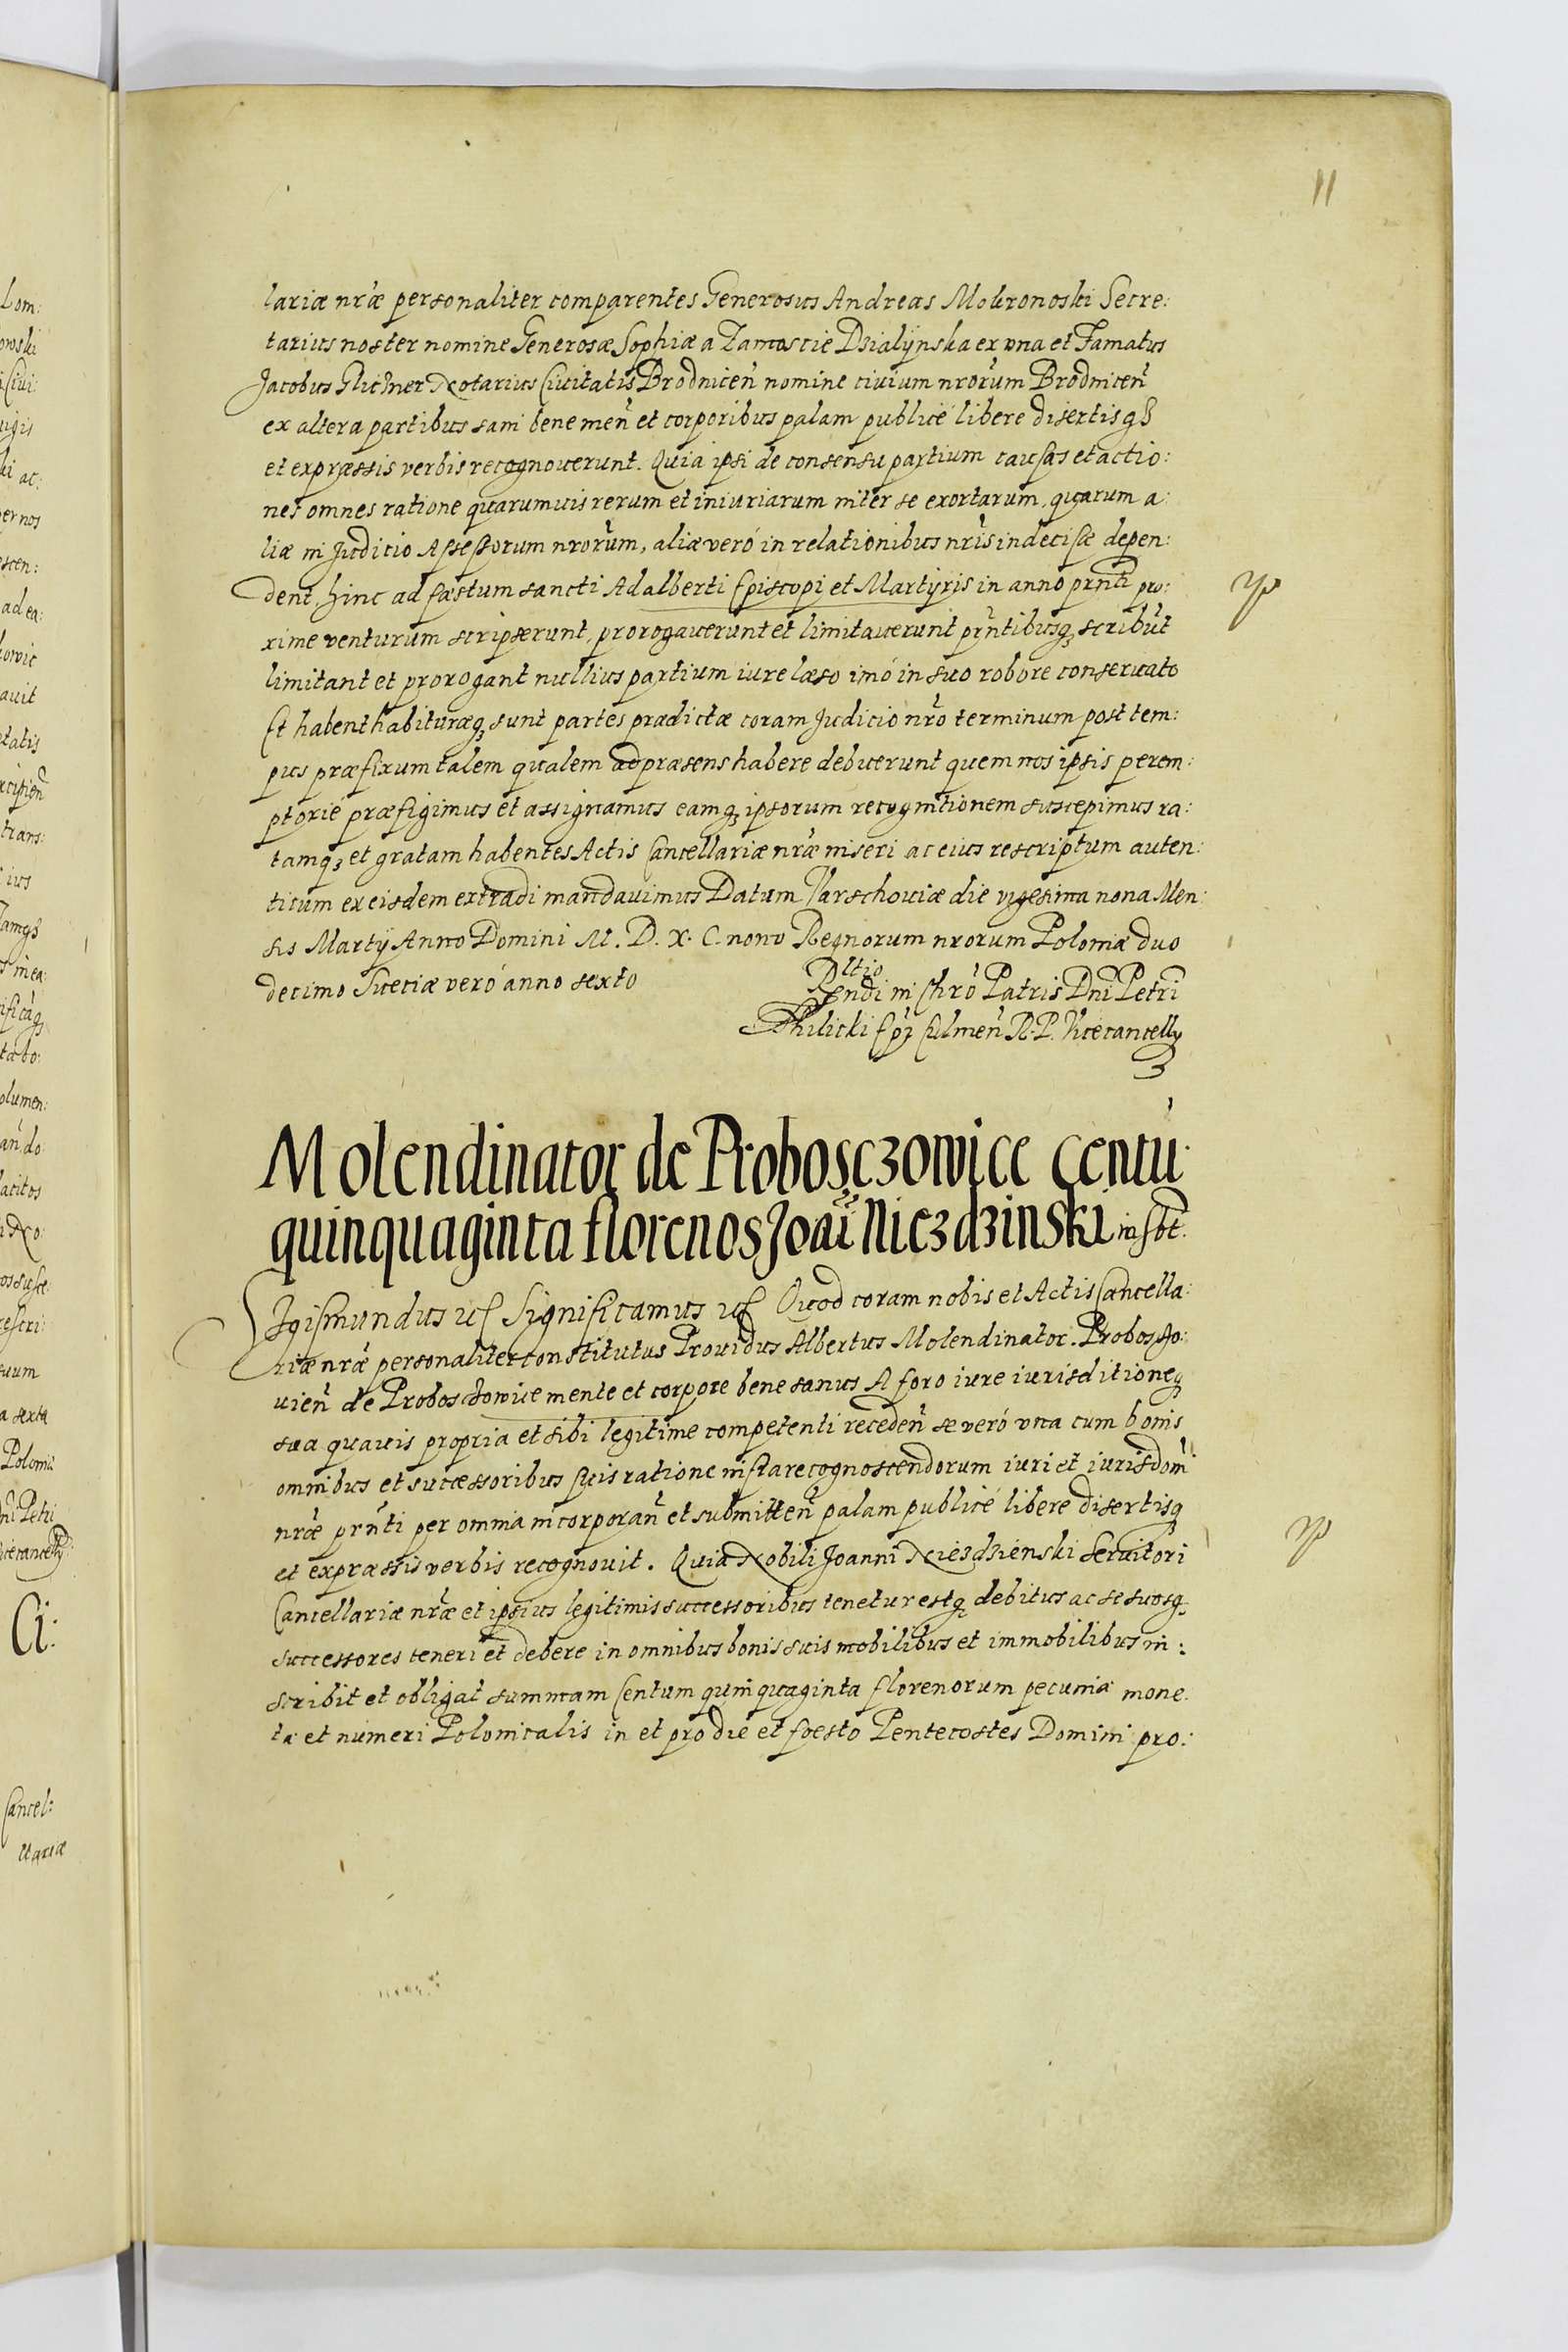 11
lariæ nr̃æ personaliter comparentes Generosus Andreas Mokronoski Secre:
tarius noster nomine Generosæ Sophiæ a Zamoscie Dzialÿnska ex vna et Famatus
Jacobus Glicner Notarius Ciuitatis Brodniceñ nomine ciuium nrõrum Brodniceñ
ex altera partibus sani bene meñ et corporibus palam publicè libere disertisq3
et expræssis verbis recognouerunt. Quia ipsi de consensu partium causas et actio:
nes omnes ratione quarumuis rerum et iniuriarum inter se exortarum, quarum a:
liæ in Judicio Assessorum nrõrum, aliæ verò in relationibus nrĩs indecisæ depen:
dent hinc ad fæstum sancti Adalberti Episcopi et Martÿris in anno prñti pro:
xime venturum scripserunt, prorogauerunt et limitauerunt prñtibusq3 scribũt
limitant et prorogant nullius partium iure læso imò in suo robore conseruato
Et habent habituræq3 sunt partes prædictæ coram Judicio nrõ terminum post tem:
pus præfixum talem qualem ad præsens habere debuerunt quem nos ipsis perem:
ptoriè præfigimus et assignamus eamq3 ipsorum recognitionem suscepimus ra:
tamq3 et gratam habentes Actis Cancellariæ nr̃æ inseri ac eius rescriptum auten:
ticum ex eisdem extradi mandauimus Datum Varschouiæ die vigesima nona Men:
sis Martÿ Anno Domini M. D. X. C. nono Regnorum nrorum Poloniæ duo
decimo Sueciæ verò anno sexto
Rltio
Rndi in Chrõ Patris Dñi Petri
Thilicki Epĩ Culmeñ R. P. Vicecancellÿ
Molendinator de Probosczowice Centũ
quinquaginta florenos Joañi Niezdzinski inscbt.
Sigismundus etc Significamus etc Quod coram nobis et Actis Cancella:
riæ nr̃æ personaliter constitutus Prouidus Albertus Molendinator Probosczo:
uieñ de Proboschowice mente et corpore bene sanus A foro iure iurisditioneq3
sua quauis propria et sibi legitime competenti recedeñ se verò vna cum bonis
omnibus et successoribus suis ratione infra recognoscendorum iuri et iurisdom̃
nr̃æ prñti per omnia incorporañ et submitteñ palam publicè libere disertisq3
et expræssis verbis recognouit. Quia Nobili Joanni Niezdzienski Seruitori
Cancellariæ nr̃æ et ipsius legitimis successoribus tenetur estq3 debitus ac se suosq3
successores teneri et debere in omnibus bonis suis mobilibus et immobilibus in:
scribit et obligat summam Centum quinquaginta florenorum pecuniæ mone:
tæ et numeri Polonicalis in et pro die et foesto Pentecostes Domini pro: